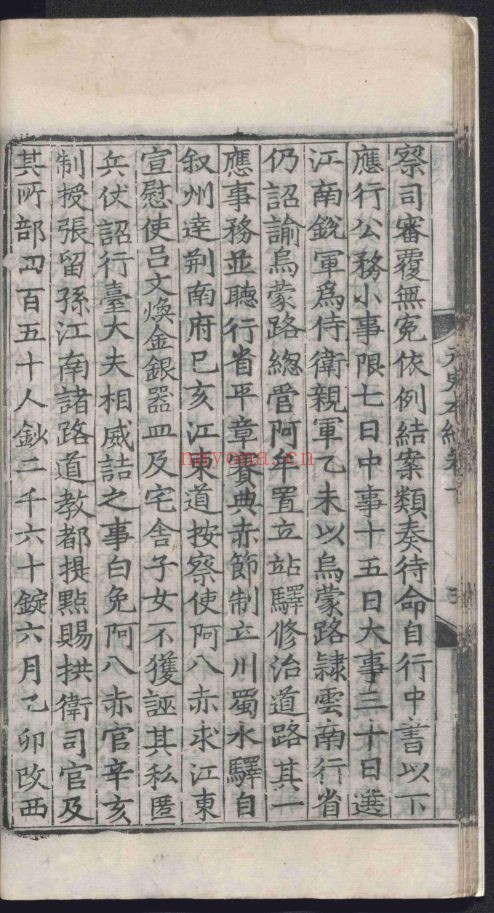 察司審覆無冤依例結案類奏待命自行中書以下
應行公務小事限七日中事十五日大事三十日選
江南銳軍爲侍衛親軍乙未以烏蒙路隷雲南行省
仍詔諭烏蒙路緫管阿牟置立站驛修治道路其一
應事務並聽行省平章賽典赤節制立川蜀水驛自
叙州逹荆南府巳亥江東道按察使阿八赤求江東
宣慰使吕文焕金銀器皿及宅舎子女不獲誣其私匿
兵仗詔行臺大夫相威詰之事白免阿八赤官辛亥
制授張留孫江南諸路道教都提㸃賜拱衛司官及
其所部四百五十人鈔二千六十錠六月乙卯改西
元史本紀卷十
三
nayona.cn